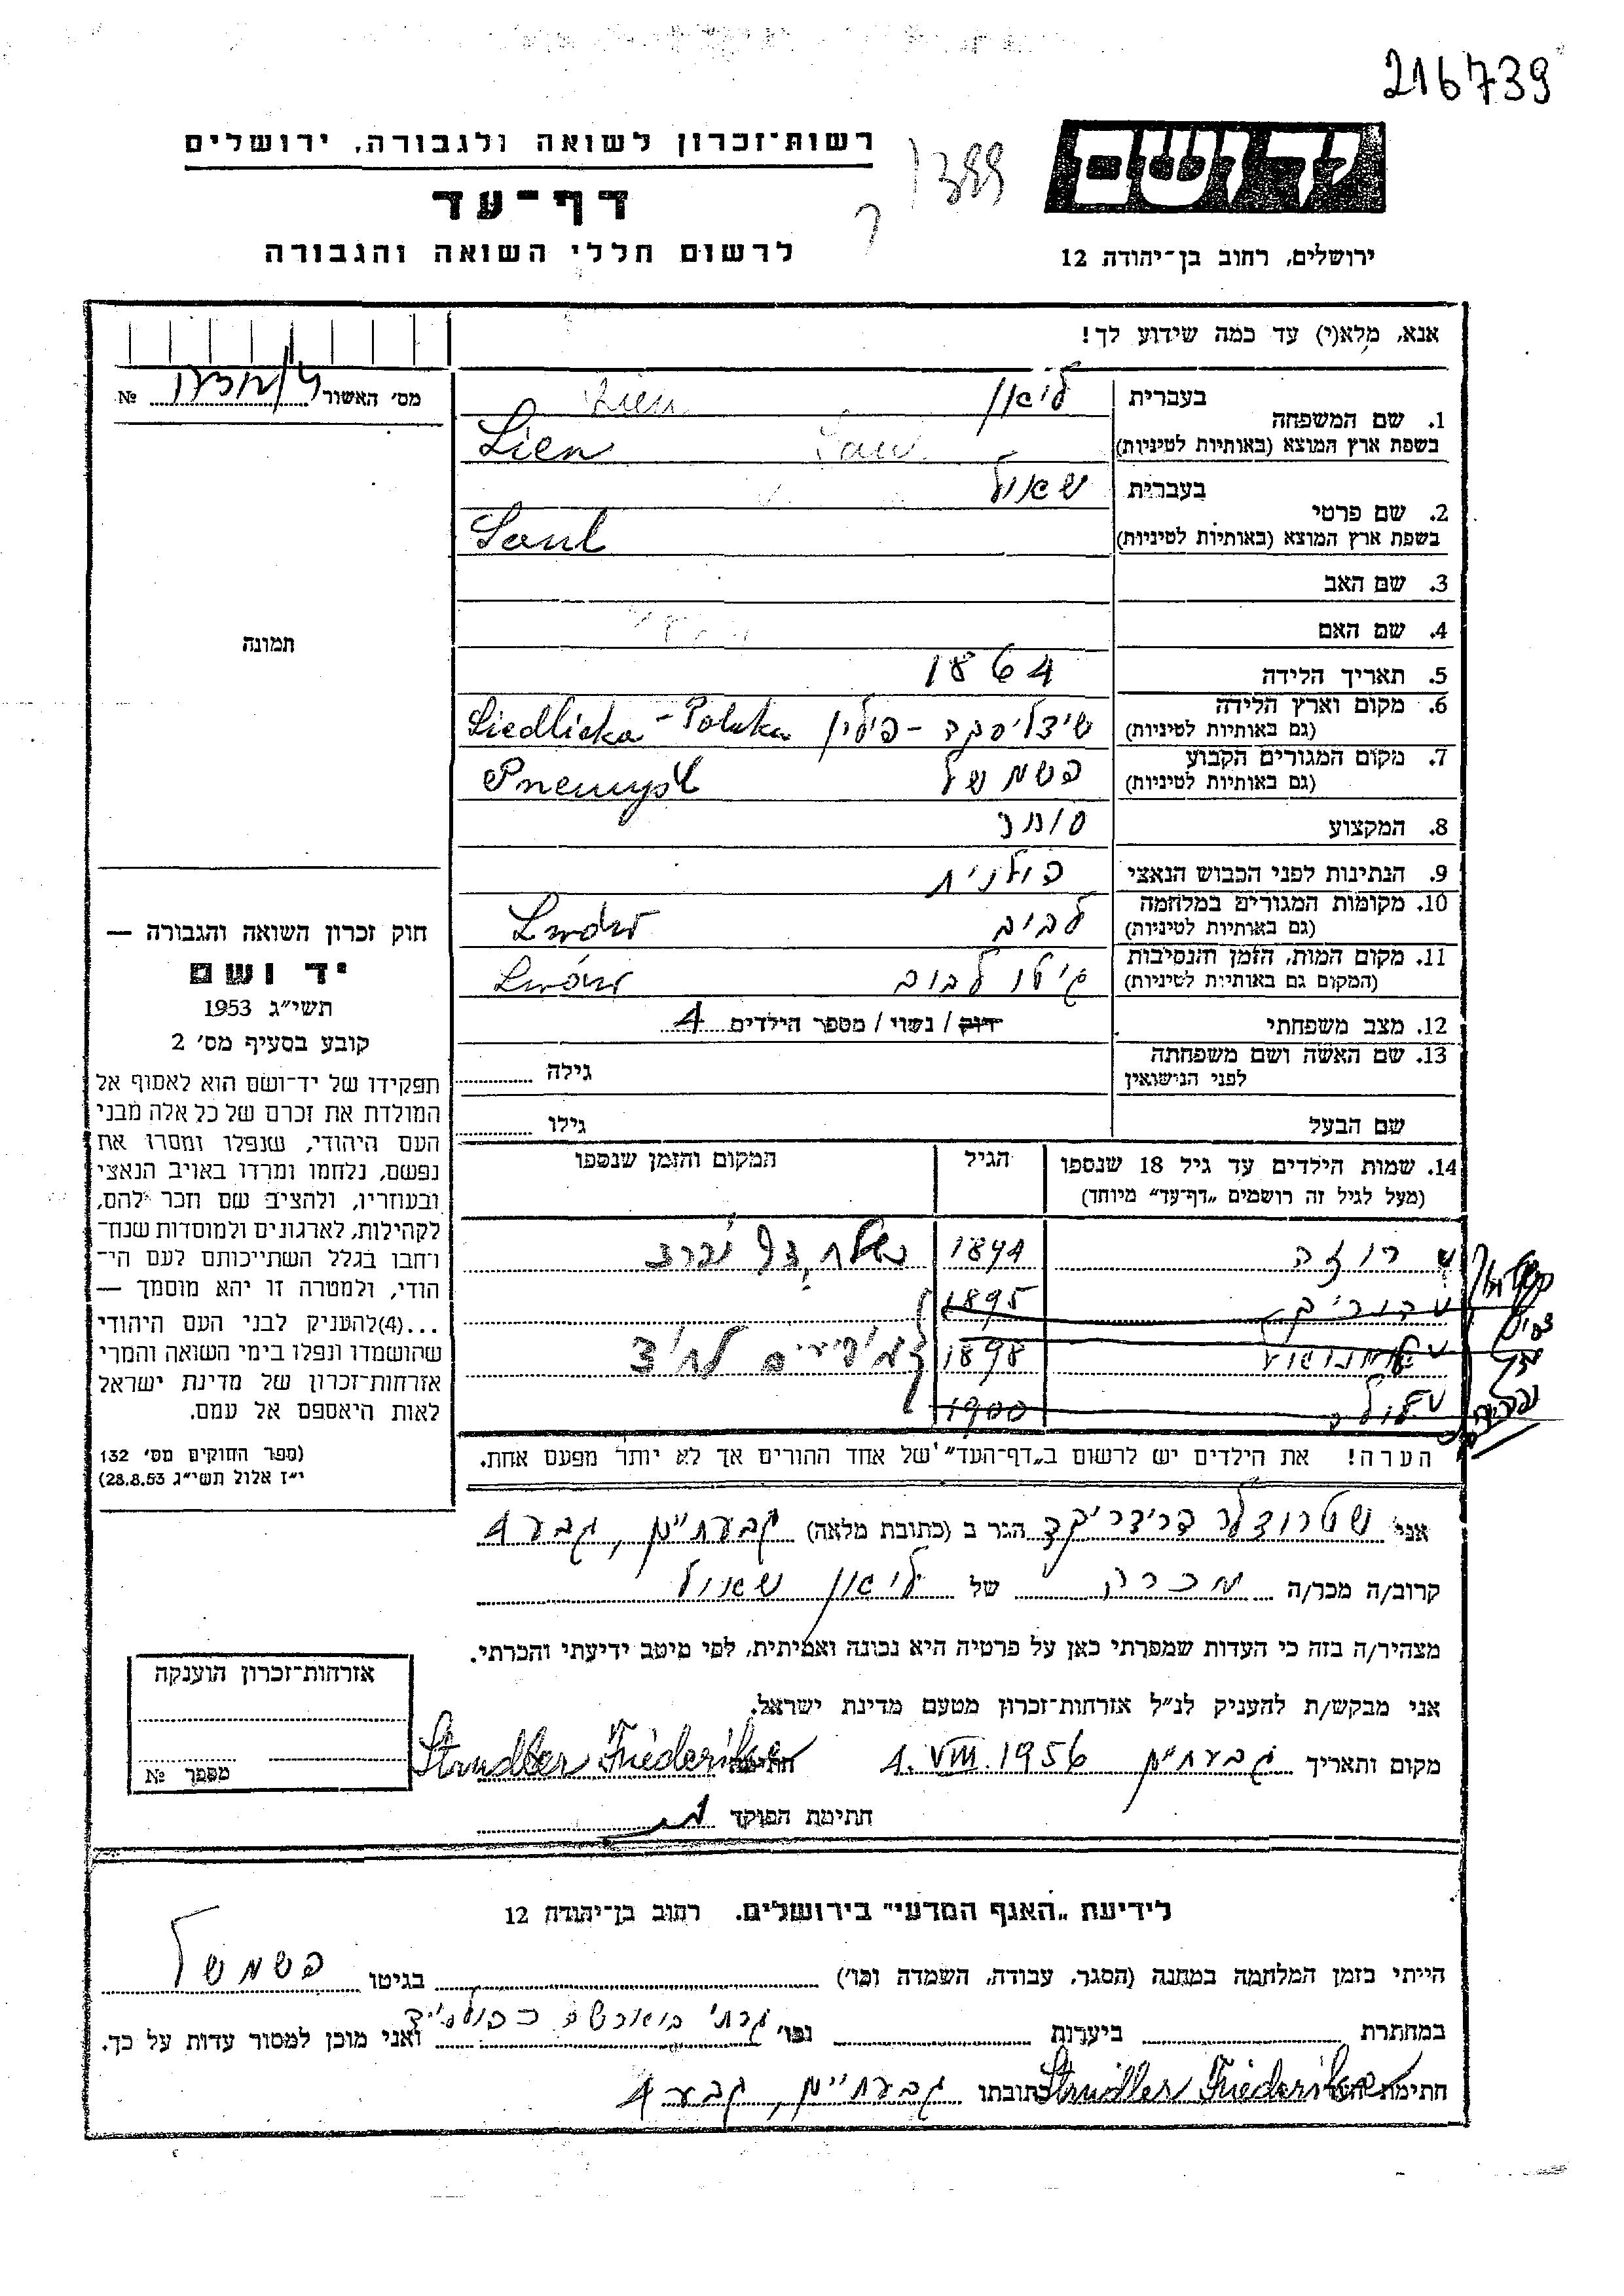 216739
רשות־זכרון לשואה ולגבורה, ירושלים
1399
יד ושם
דף־עד
לרשום חללי השואה והגבורה
ירושלים, רחוב בן־יהודה 12
אנא, מלא(י) עד כמה שידוע לך!
מס' האשור № 
1. שם המשפחה
בעברית
Lien
בשפת ארץ המוצא (באותיות לטיניות) Lien
2. שם פרטי
בעברית שאול
בשפת ארץ המוצא (באותיות לטיניות) Saul
3. שם האב
4. שם האם
5. תאריך הלידה 1864
6. מקום וארץ הלידה
(גם באותיות לטיניות) שידליסקה - פולין Siedliska - Polska
7. מקום המגורים הקבוע
(גם באותיות לטיניות) פשמשל
8. המקצוע סוחר
9. הנתינות לפני הכבוש הנאצי פולנית
10. מקומות המגורים במלחמה
(גם באותיות לטיניות) לבוב Lwów
11. מקום המות, הזמן והנסיבות
(המקום גם באותיות לטיניות) גיטו לבוב Lwów
12. מצב משפחתי רווק / נשוי / מספר הילדים 4
13. שם האשה ושם משפחתה
לפני הנישואין גילה
שם הבעל גילו
14. שמות הילדים עד גיל 18 שנספו
(מעל לגיל זה רושמים „דף־עד״ מיוחד)
הגיל
המקום והזמן שנספו
רוזה 1894
1895
1898
1900
הערה! את הילדים יש לרשום ב„דף־העד״ של אחד ההורים אך לא יותר מפעם אחת.
תמונה
חוק זכרון השואה והגבורה —
יד ושם
תשי״ג 1953
קובע בסעיף מס' 2
תפקידו של יד־ושם הוא לאסוף אל
המולדת את זכרם של כל אלה מבני
העם היהודי, שנפלו ומסרו את
נפשם, נלחמו ומרדו באויב הנאצי
ובעוזריו, ולהציב שם וזכר להם,
לקהילות, לארגונים ולמוסדות שנח־
רבו בגלל השתייכותם לעם הי־
הודי, ולמטרה זו יהא מוסמך —
...(4)להעניק לבני העם היהודי
שהושמדו ונפלו בימי השואה והמרי
אזרחות־זכרון של מדינת ישראל
לאות היאספם אל עמם.
(ספר החוקים מס' 132
י״ז אלול תשי״ג 28.8.53)
אני שטרודלר פרידריקה הגר ב (כתובת מלאה) גבעתיים, גבע 4
קרוב/ה מכר/ה מכרה של ליאן שאול
מצהיר/ה בזה כי העדות שמסרתי כאן על פרטיה היא נכונה ואמיתית, לפי מיטב ידיעתי והכרתי.
אני מבקש/ת להעניק לנ״ל אזרחות־זכרון מטעם מדינת ישראל.
מקום ותאריך גבעתיים 1. VIII. 1956 חתימה Strudler Friederike
חתימת הפוקד
אזרחות־זכרון הוענקה
מספר №
לידיעת „האגף המדעי״ בירושלים. רחוב בן־יהודה 12
הייתי בזמן המלחמה במחנה (הסגר, עבודה, השמדה וכו') בגיטו פשמשל
במחתרת ביערות וכו' ואני מוכן למסור עדות על כך.
חתימת Strudler Friederike כתובתו גבעתיים, גבע 4